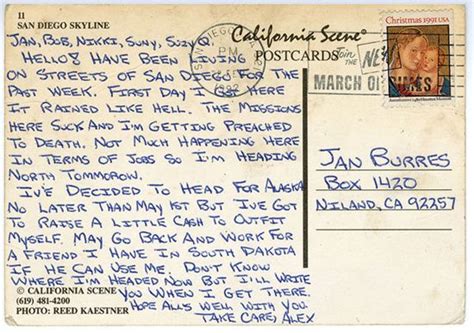 11
SAN DIEGO SKYLINE
California Scene®
POSTCARDS
Christmas 1991 USA
SAN DIEGO
PM
1992
Join
the
MARCH OF DIMES
JAN, BOB, NIKKI, SUNY, SUZY
HELLO8 HAVE BEEN LIVING
ON STREETS OF SAN DIEGO FOR THE
PAST WEEK. FIRST DAY I GOT HERE
IT RAINED LIKE HELL. THE MISSIONS
HERE SUCK AND I'M GETTING PREACHED
TO DEATH. NOT MUCH HAPPENING HERE
IN TERMS OF JOBS SO I'M HEADING
NORTH TOMMOROW.
IV'E DECIDED TO HEAD FOR ALASKA
NO LATER THAN MAY 1ST BUT I'VE GOT
TO RAISE A LITTLE CASH TO OUTFIT
MYSELF. MAY GO BACK AND WORK FOR
A FRIEND I HAVE IN SOUTH DAKOTA
IF HE CAN USE ME. DON'T KNOW
WHERE I'M HEADED NOW BUT I'LL WRITE
YOU WHEN I GET THERE.
HOPE ALL'S WELL WITH YOU.
TAKE CARE, ALEX
JAN BURRES
BOX 1420
NILAND, CA 92257
© CALIFORNIA SCENE
(619) 481-4200
PHOTO: REED KAESTNER